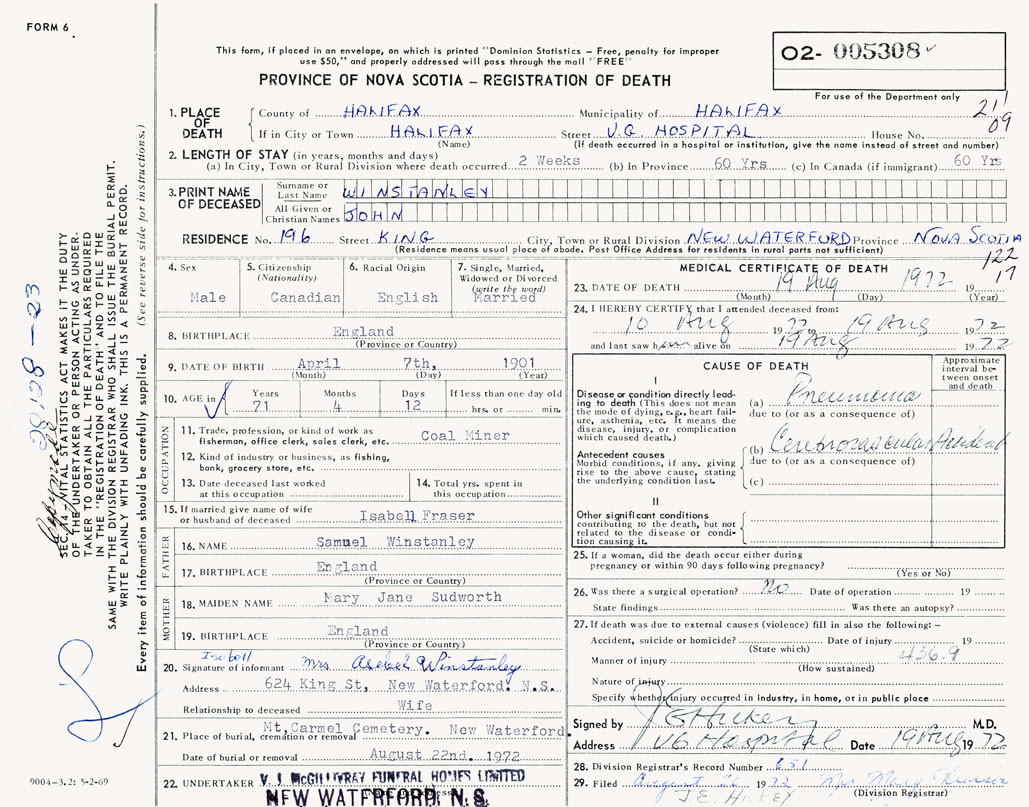 FORM 6.
This form, if placed in an envelope, on which is printed "Dominion Statistics – Free, penalty for improper
use $50," and properly addressed will pass through the mail "FREE"
PROVINCE OF NOVA SCOTIA – REGISTRATION OF DEATH
02- 005308
For use of the Department only
211
09
1. PLACE OF DEATH
County of HALIFAX Municipality of HALIFAX
If in City or Town HALIFAX Street V.G. HOSPITAL House No.
(Name) (If death occurred in a hospital or institution, give the name instead of street and number)
2. LENGTH OF STAY (in years, months and days)
(a) In City, Town or Rural Division where death occurred 2 Weeks (b) In Province 60 Yrs (c) In Canada (if immigrant) 60 Yrs
3. PRINT NAME OF DECEASED
Surname or Last Name WINSTANLEY
All Given or Christian Names JOHN
RESIDENCE No. 196 Street KING City, Town or Rural Division NEW WATERFORD Province NOVA SCOTIA
(Residence means usual place of abode. Post Office Address for residents in rural parts not sufficient)
122
17
4. Sex
Male
5. Citizenship
(Nationality)
Canadian
6. Racial Origin
English
7. Single, Married,
Widowed or Divorced
(write the word)
Married
8. BIRTHPLACE England
(Province or Country)
9. DATE OF BIRTH April 7th, 1901
(Month) (Day) (Year)
10. AGE in Years Months Days If less than one day old
71 4 12 hrs. or min.
OCCUPATION
11. Trade, profession, or kind of work as
fisherman, office clerk, sales clerk, etc. Coal Miner
12. Kind of industry or business, as fishing,
bank, grocery store, etc.
13. Date deceased last worked
at this occupation
14. Total yrs. spent in
this occupation
15. If married give name of wife
or husband of deceased Isabell Fraser
FATHER
16. NAME Samuel Winstanley
17. BIRTHPLACE England
(Province or Country)
MOTHER
18. MAIDEN NAME Mary Jane Sudworth
19. BIRTHPLACE England
(Province or Country)
Isobell
20. Signature of informant Mrs Asebel Winstanley
Address 624 King St, New Waterford. N.S.
Relationship to deceased Wife
21. Place of burial, cremation or removal Mt, Carmel Cemetery. New Waterford.
Date of burial or removal August 22nd. 1972
22. UNDERTAKER V. J. McGILLIVRAY FUNERAL HOMES LIMITED
NEW WATERFORD, N. S.
MEDICAL CERTIFICATE OF DEATH
23. DATE OF DEATH 19 Aug 1972 19
(Month) (Day) (Year)
24. I HEREBY CERTIFY that I attended deceased from:
10 Aug 1972 to 19 Aug 1972
and last saw him alive on 19 Aug 1972
CAUSE OF DEATH
Approximate
interval be-
tween onset
and death
I
Disease or condition directly lead-
ing to death (This does not mean
the mode of dying, e.g., heart fail-
ure, asthenia, etc. It means the
disease, injury, or complication
which caused death.)
(a) Pneumonia
due to (or as a consequence of)
Antecedent causes
Morbid conditions, if any, giving
rise to the above cause, stating
the underlying condition last.
(b) Cerebrovascular Accident
due to (or as a consequence of)
(c)
II
Other significant conditions
contributing to the death, but not
related to the disease or condi-
tion causing it.
25. If a woman, did the death occur either during
pregnancy or within 90 days following pregnancy?
(Yes or No)
26. Was there a surgical operation? No Date of operation 19
State findings Was there an autopsy?
27. If death was due to external causes (violence) fill in also the following: –
Accident, suicide or homicide? Date of injury 19
(State which)
436.9
Manner of injury
(How sustained)
Nature of injury
Specify whether injury occurred in industry, in home, or in public place
Signed by J E Hickey M.D.
Address VG Hospital Date 19 Aug 1972
28. Division Registrar's Record Number 651
29. Filed August 26 1972 Mrs Mary
J.E. HICKEY (Division Registrar)
SEC. 14 – VITAL STATISTICS ACT MAKES IT THE DUTY
OF THE UNDERTAKER OR PERSON ACTING AS UNDER-
TAKER TO OBTAIN ALL THE PARTICULARS REQUIRED
IN THE "REGISTRATION OF DEATH" AND TO FILE THE
SAME WITH THE DIVISION REGISTRAR WHO SHALL ISSUE THE BURIAL PERMIT.
WRITE PLAINLY WITH UNFADING INK. THIS IS A PERMANENT RECORD.
Every item of information should be carefully supplied. (See reverse side for instructions.)
9004-3.2: 5-2-69